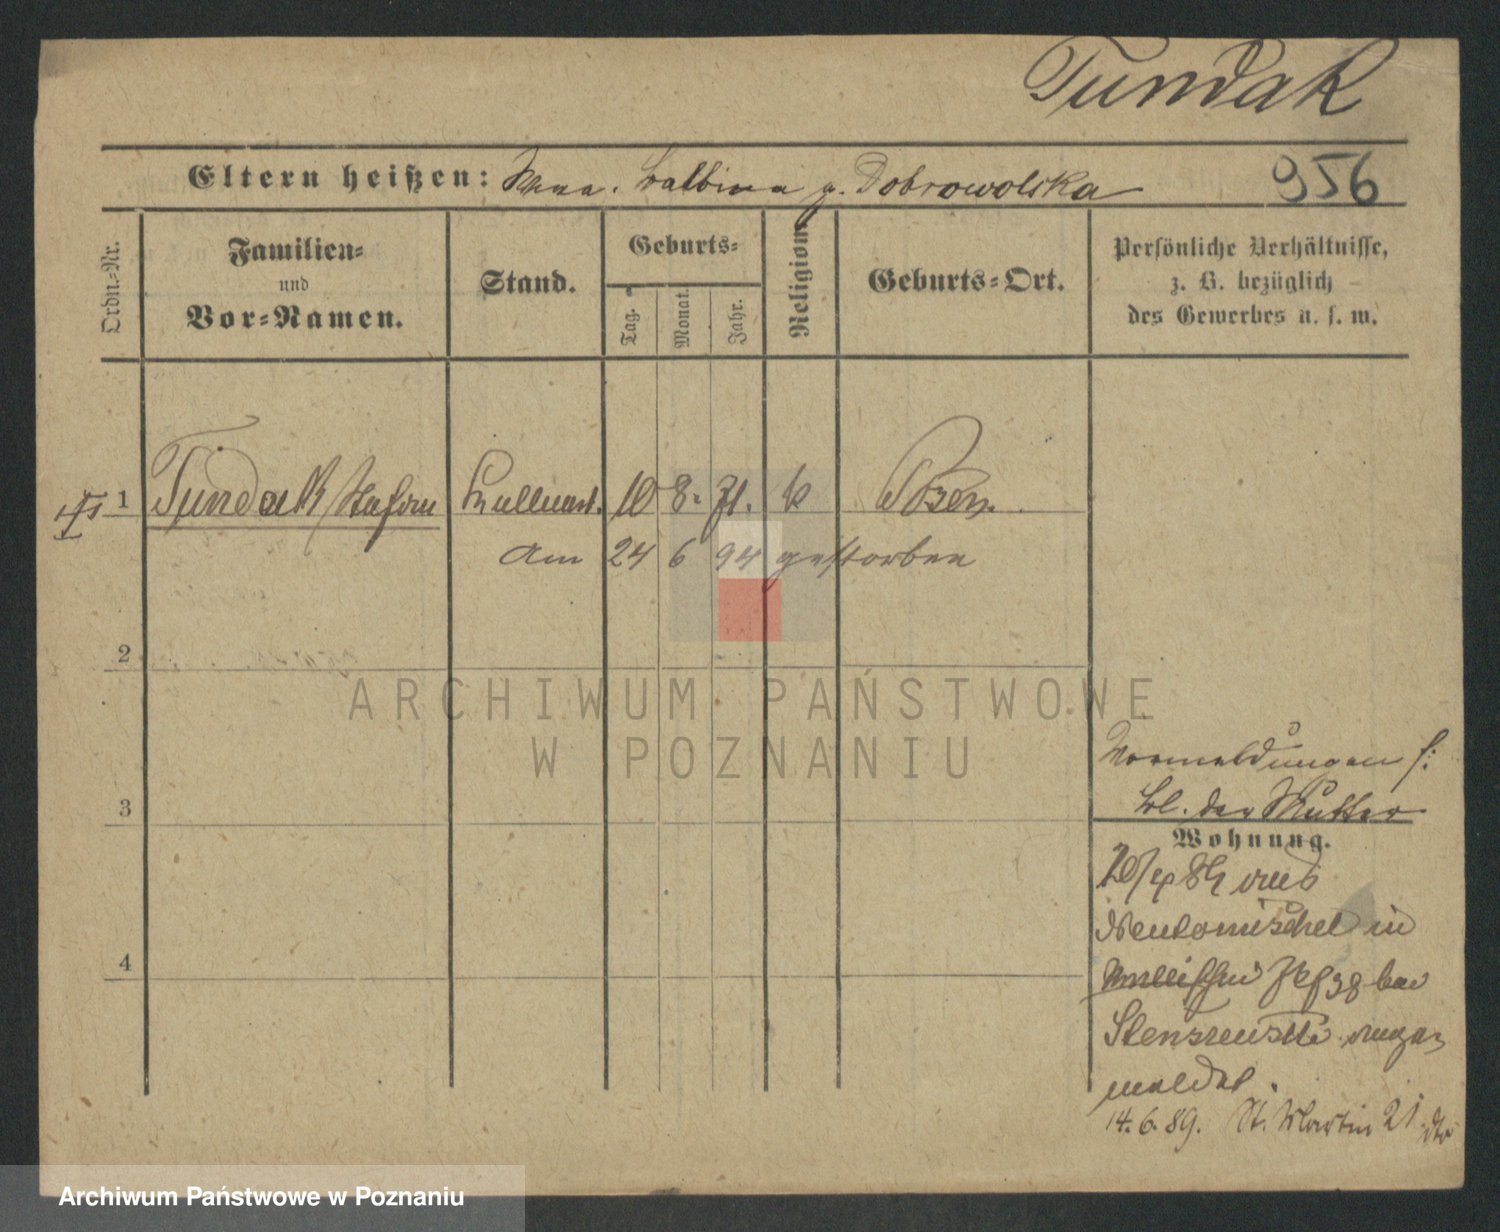 Tundak
Eltern heißen: Balbina g. Dobrowolska 956
Ordn.-Nr.
Familien-
und
Vor-Namen.
Stand.
Geburts-
Tag.
Monat.
Jahr.
Religion.
Geburts-Ort.
Persönliche Verhältnisse,
z. B. bezüglich
des Gewerbes u. s. w.
1 Tundak Stefan Kellner. 10 8. 71. k Posen.
am 24 6 94 gestorben
2
3
4
Vormeldungen s:
bl. der Mutter
Wohnung.
20/4 89 aus
Neutomischel in
38 bei
angе-
meldet.
14. 6. 89. St. Martin 21
ARCHIWUM PAŃSTWOWE
W POZNANIU
Archiwum Państwowe w Poznaniu